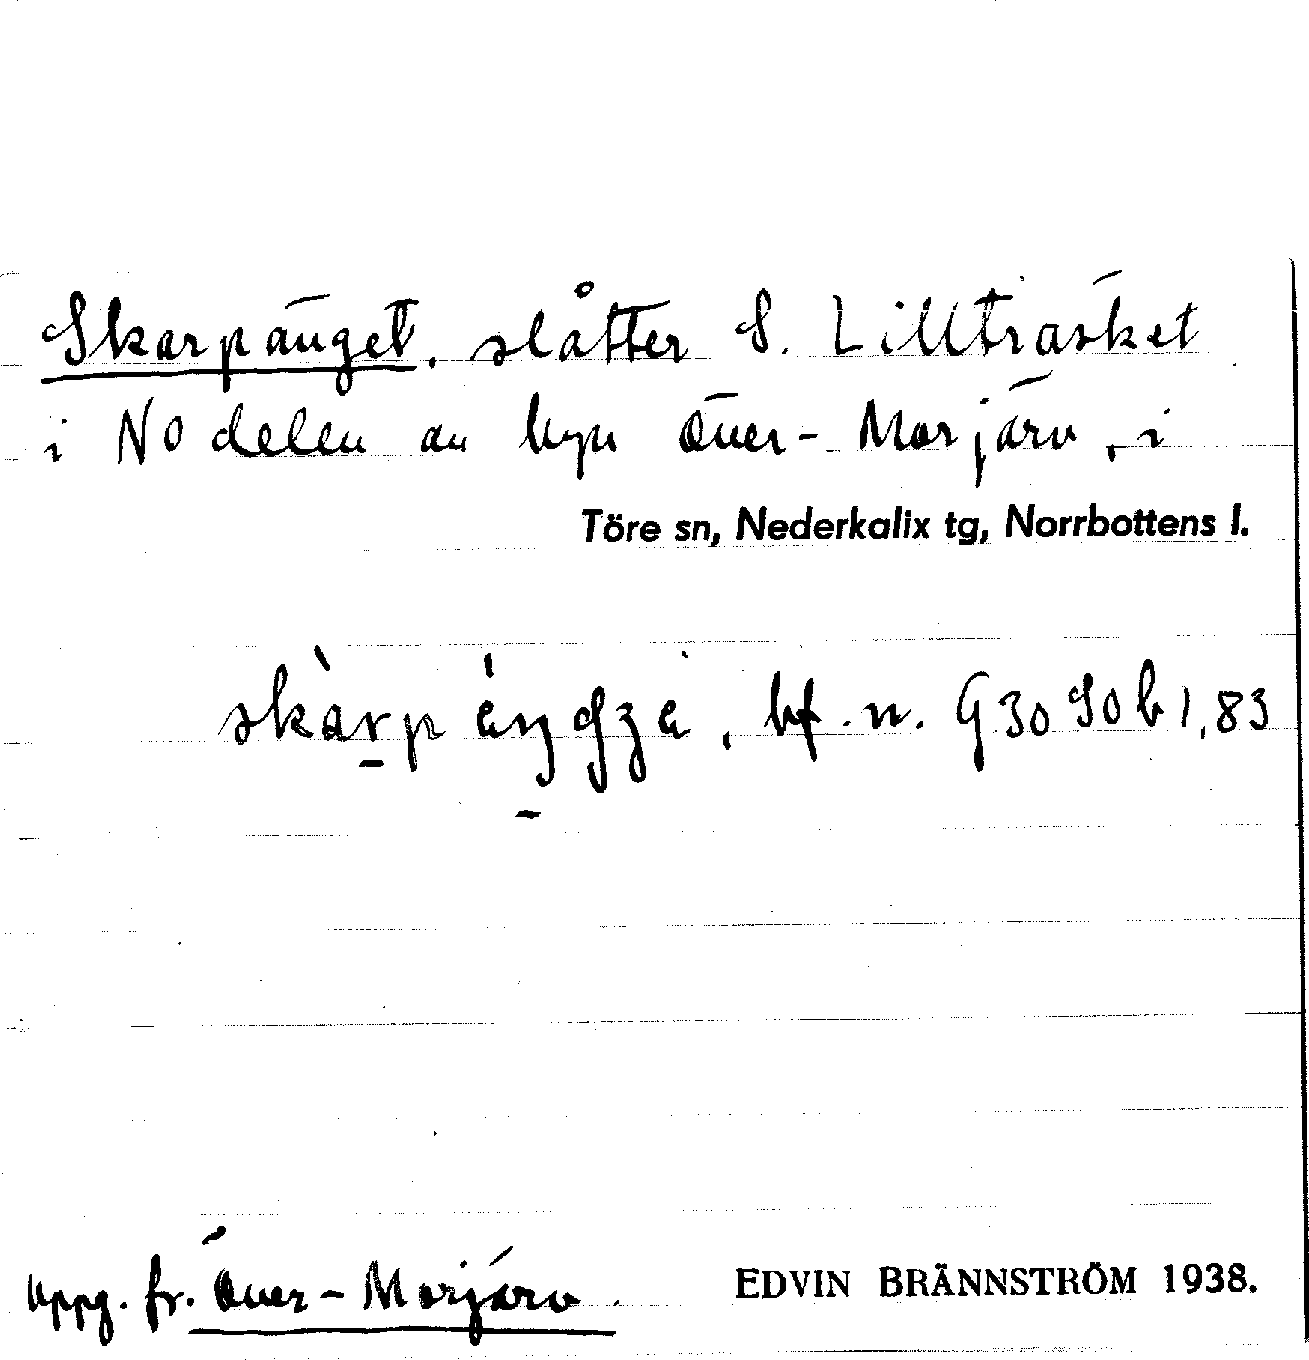 Skarpänget, slåtter S. Lillträsket
i NO delen av byn Över-Morjärv, i
Töre sn, Nederkalix tg, Norrbottens l.
bf. n. G 30 SO b 1,83
Uppg. fr. Över-Morjärv.
EDVIN BRÄNNSTRÖM 1938.